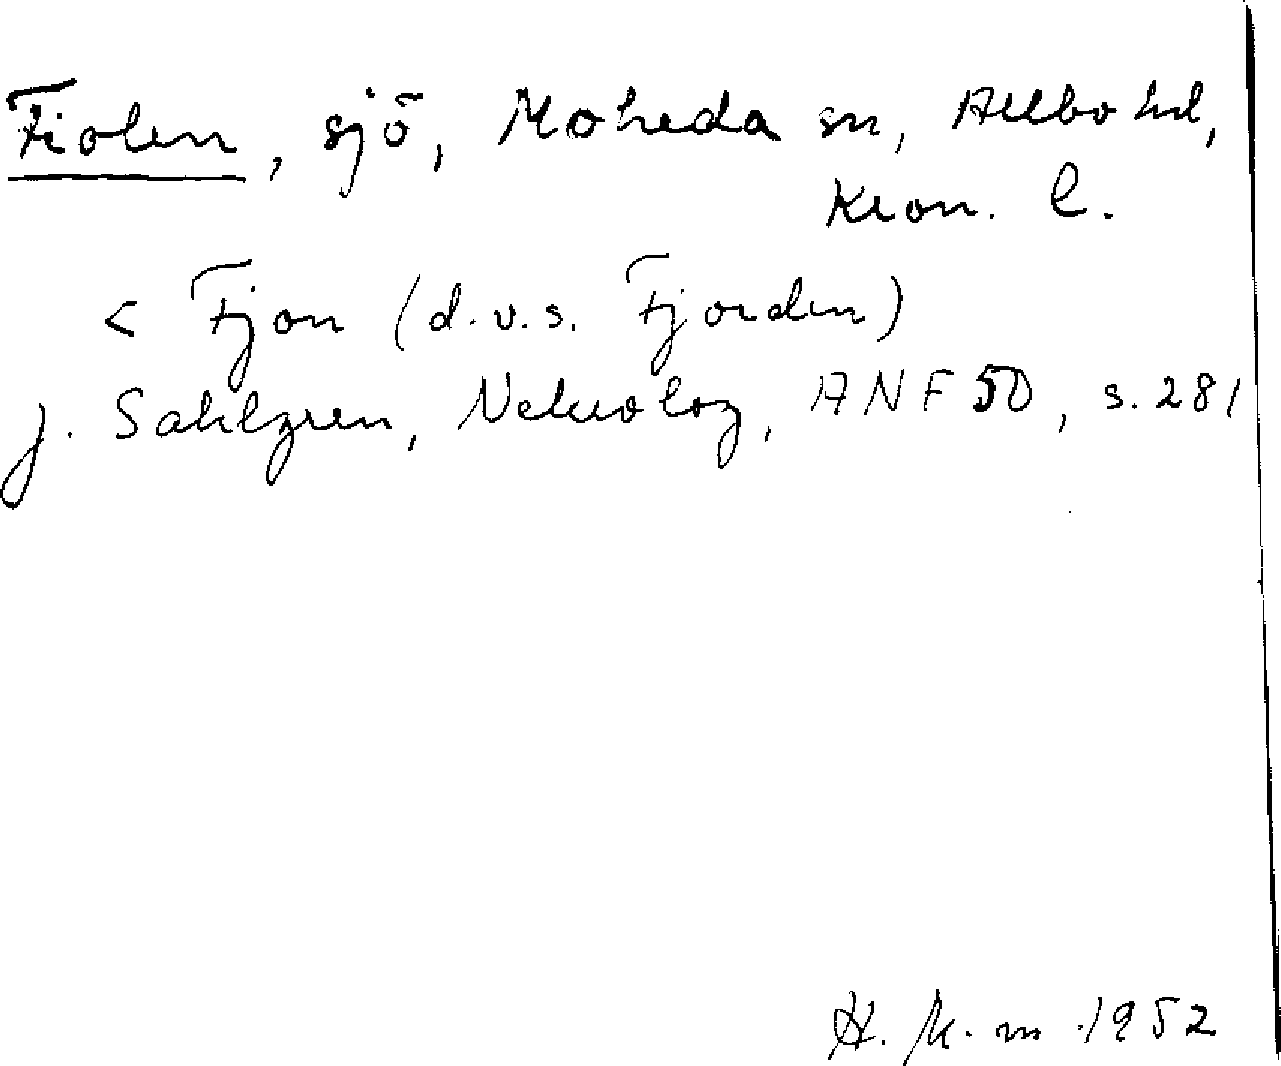 Fiolen, sjö, Moheda sn, Allbo hd,
Kron. l.
< Fjon (d.v.s. Fjorden)
J. Sahlgren, Nekrolog, ANF 50, s. 281
H. K-m 1952